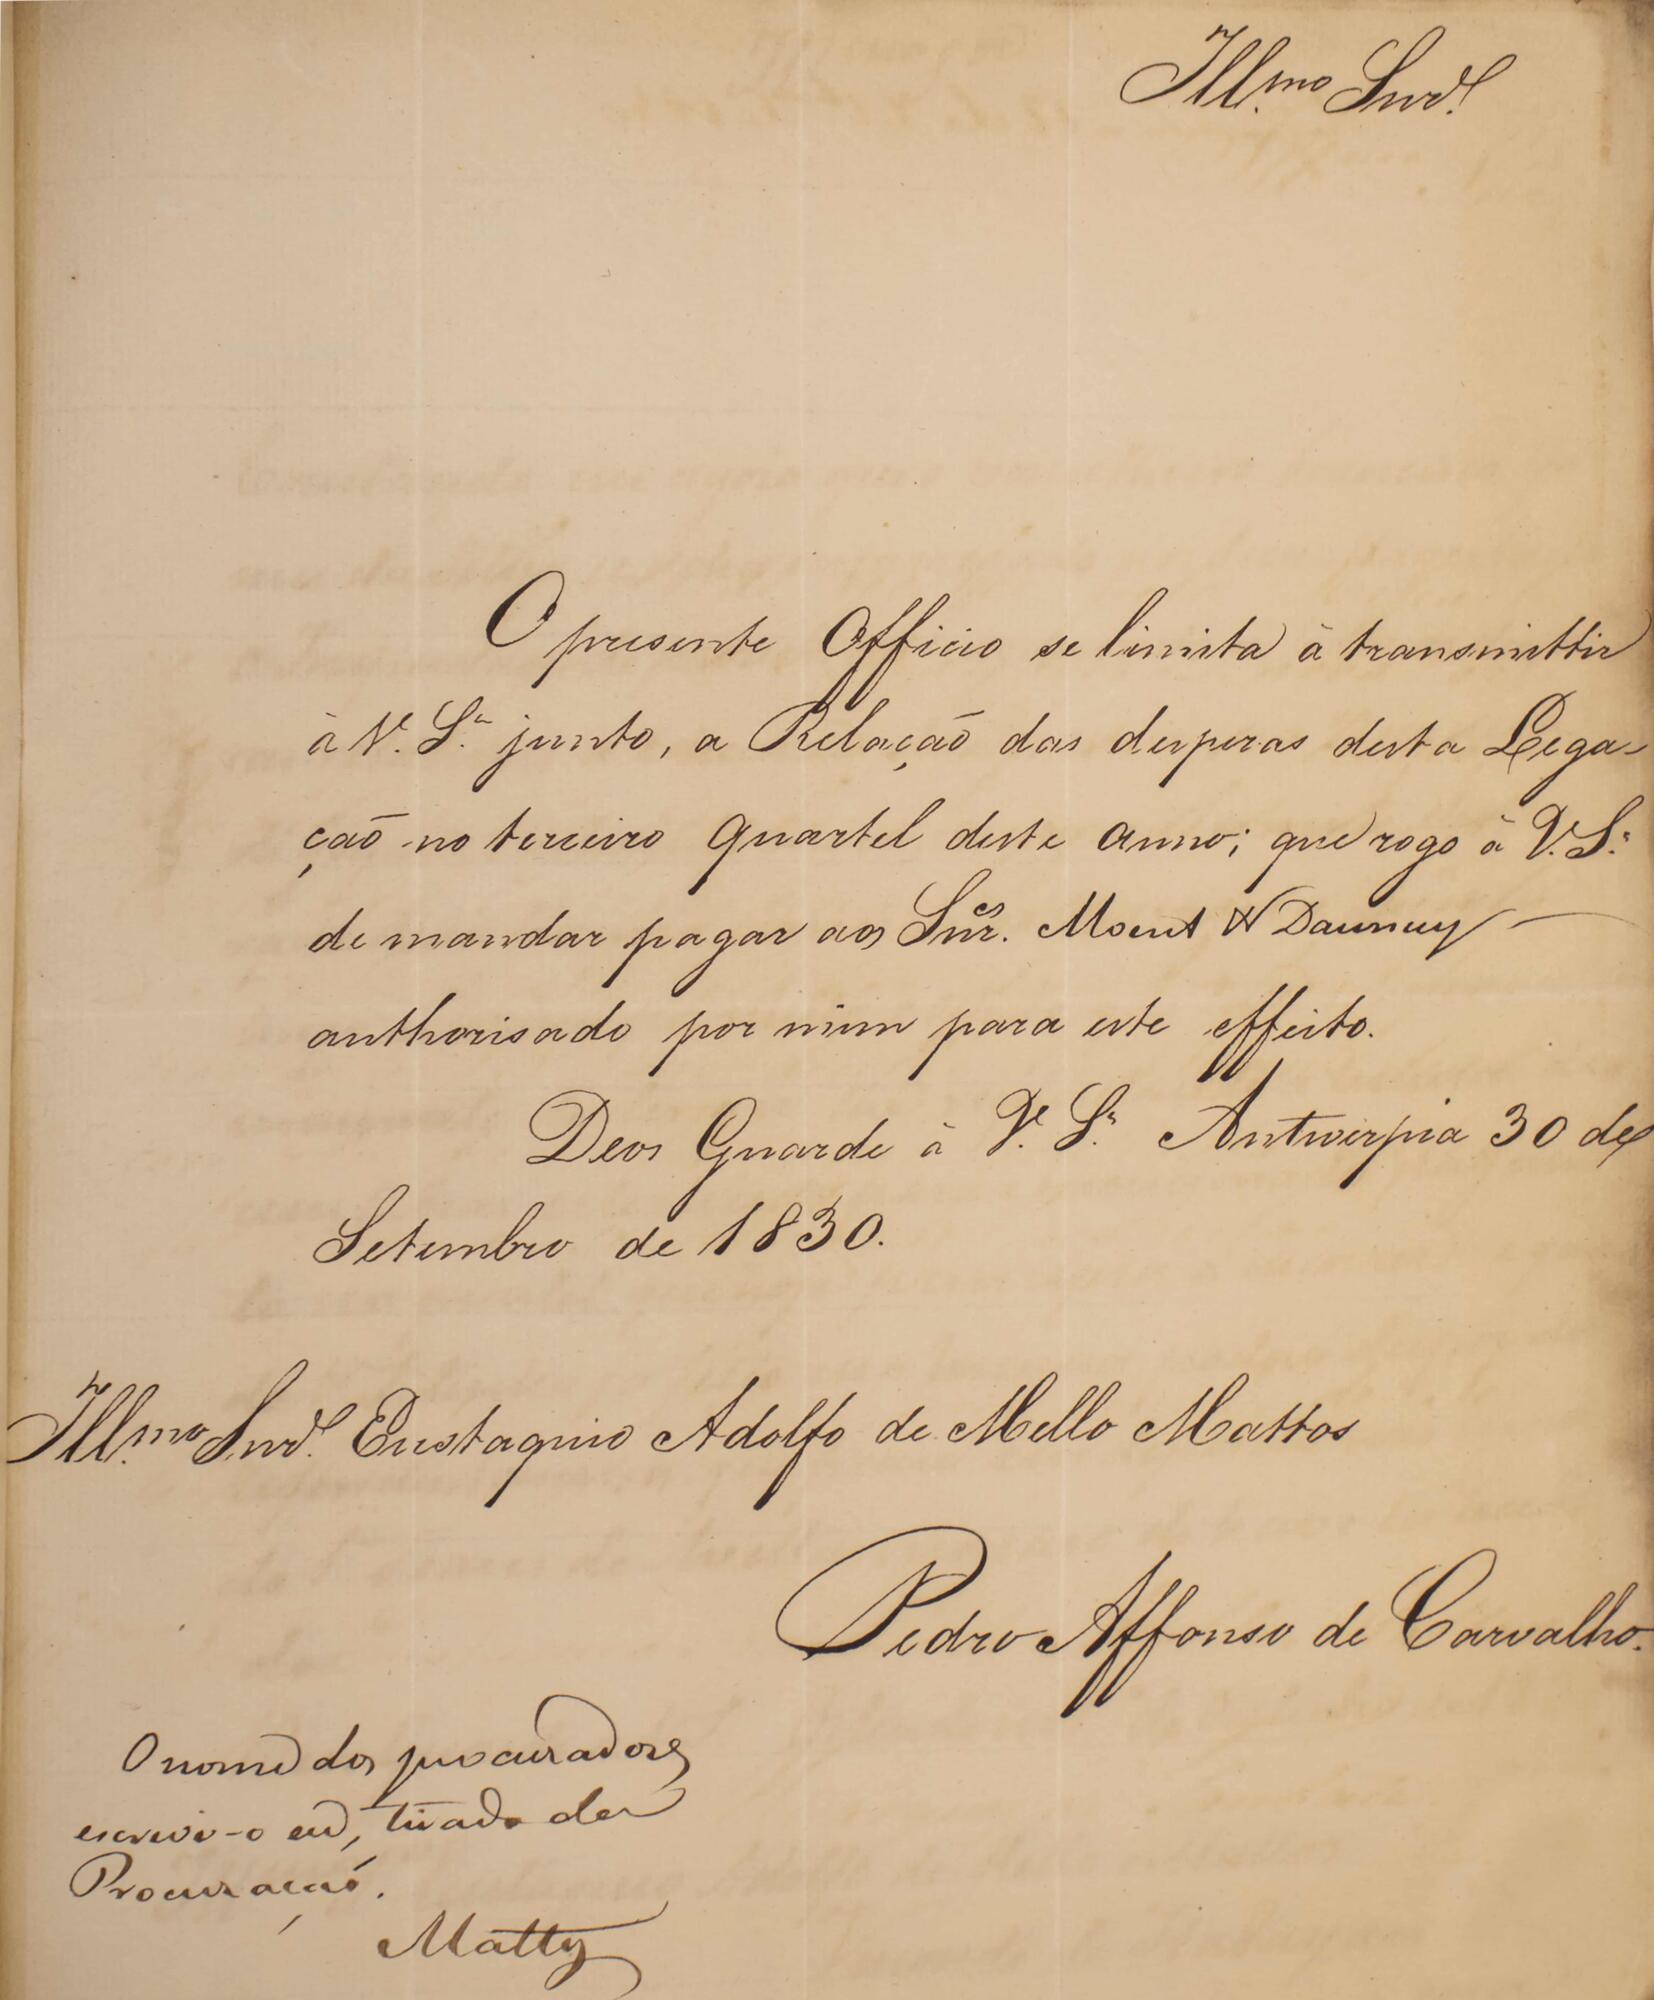 Ill.mo Snr.
O presente Officio se limita à transmittir
à V. S.a junto, a Relação das despezas desta Lega-
ção no terceiro quartel deste anno; que rogo à V. S.a
de mandar pagar aos Snr.es
authorisado por mim para este effeito.
Deos Guarde à V. S.a Antwerpia 30 de
Setembro de 1830.
Ill.mo Snr. Eustaquio Adolfo de Mello Mattos
Pedro Affonso de Carvalho.
O nome dos procuradores
escrevi-o eu, tirado da
Procuração.
Mattos